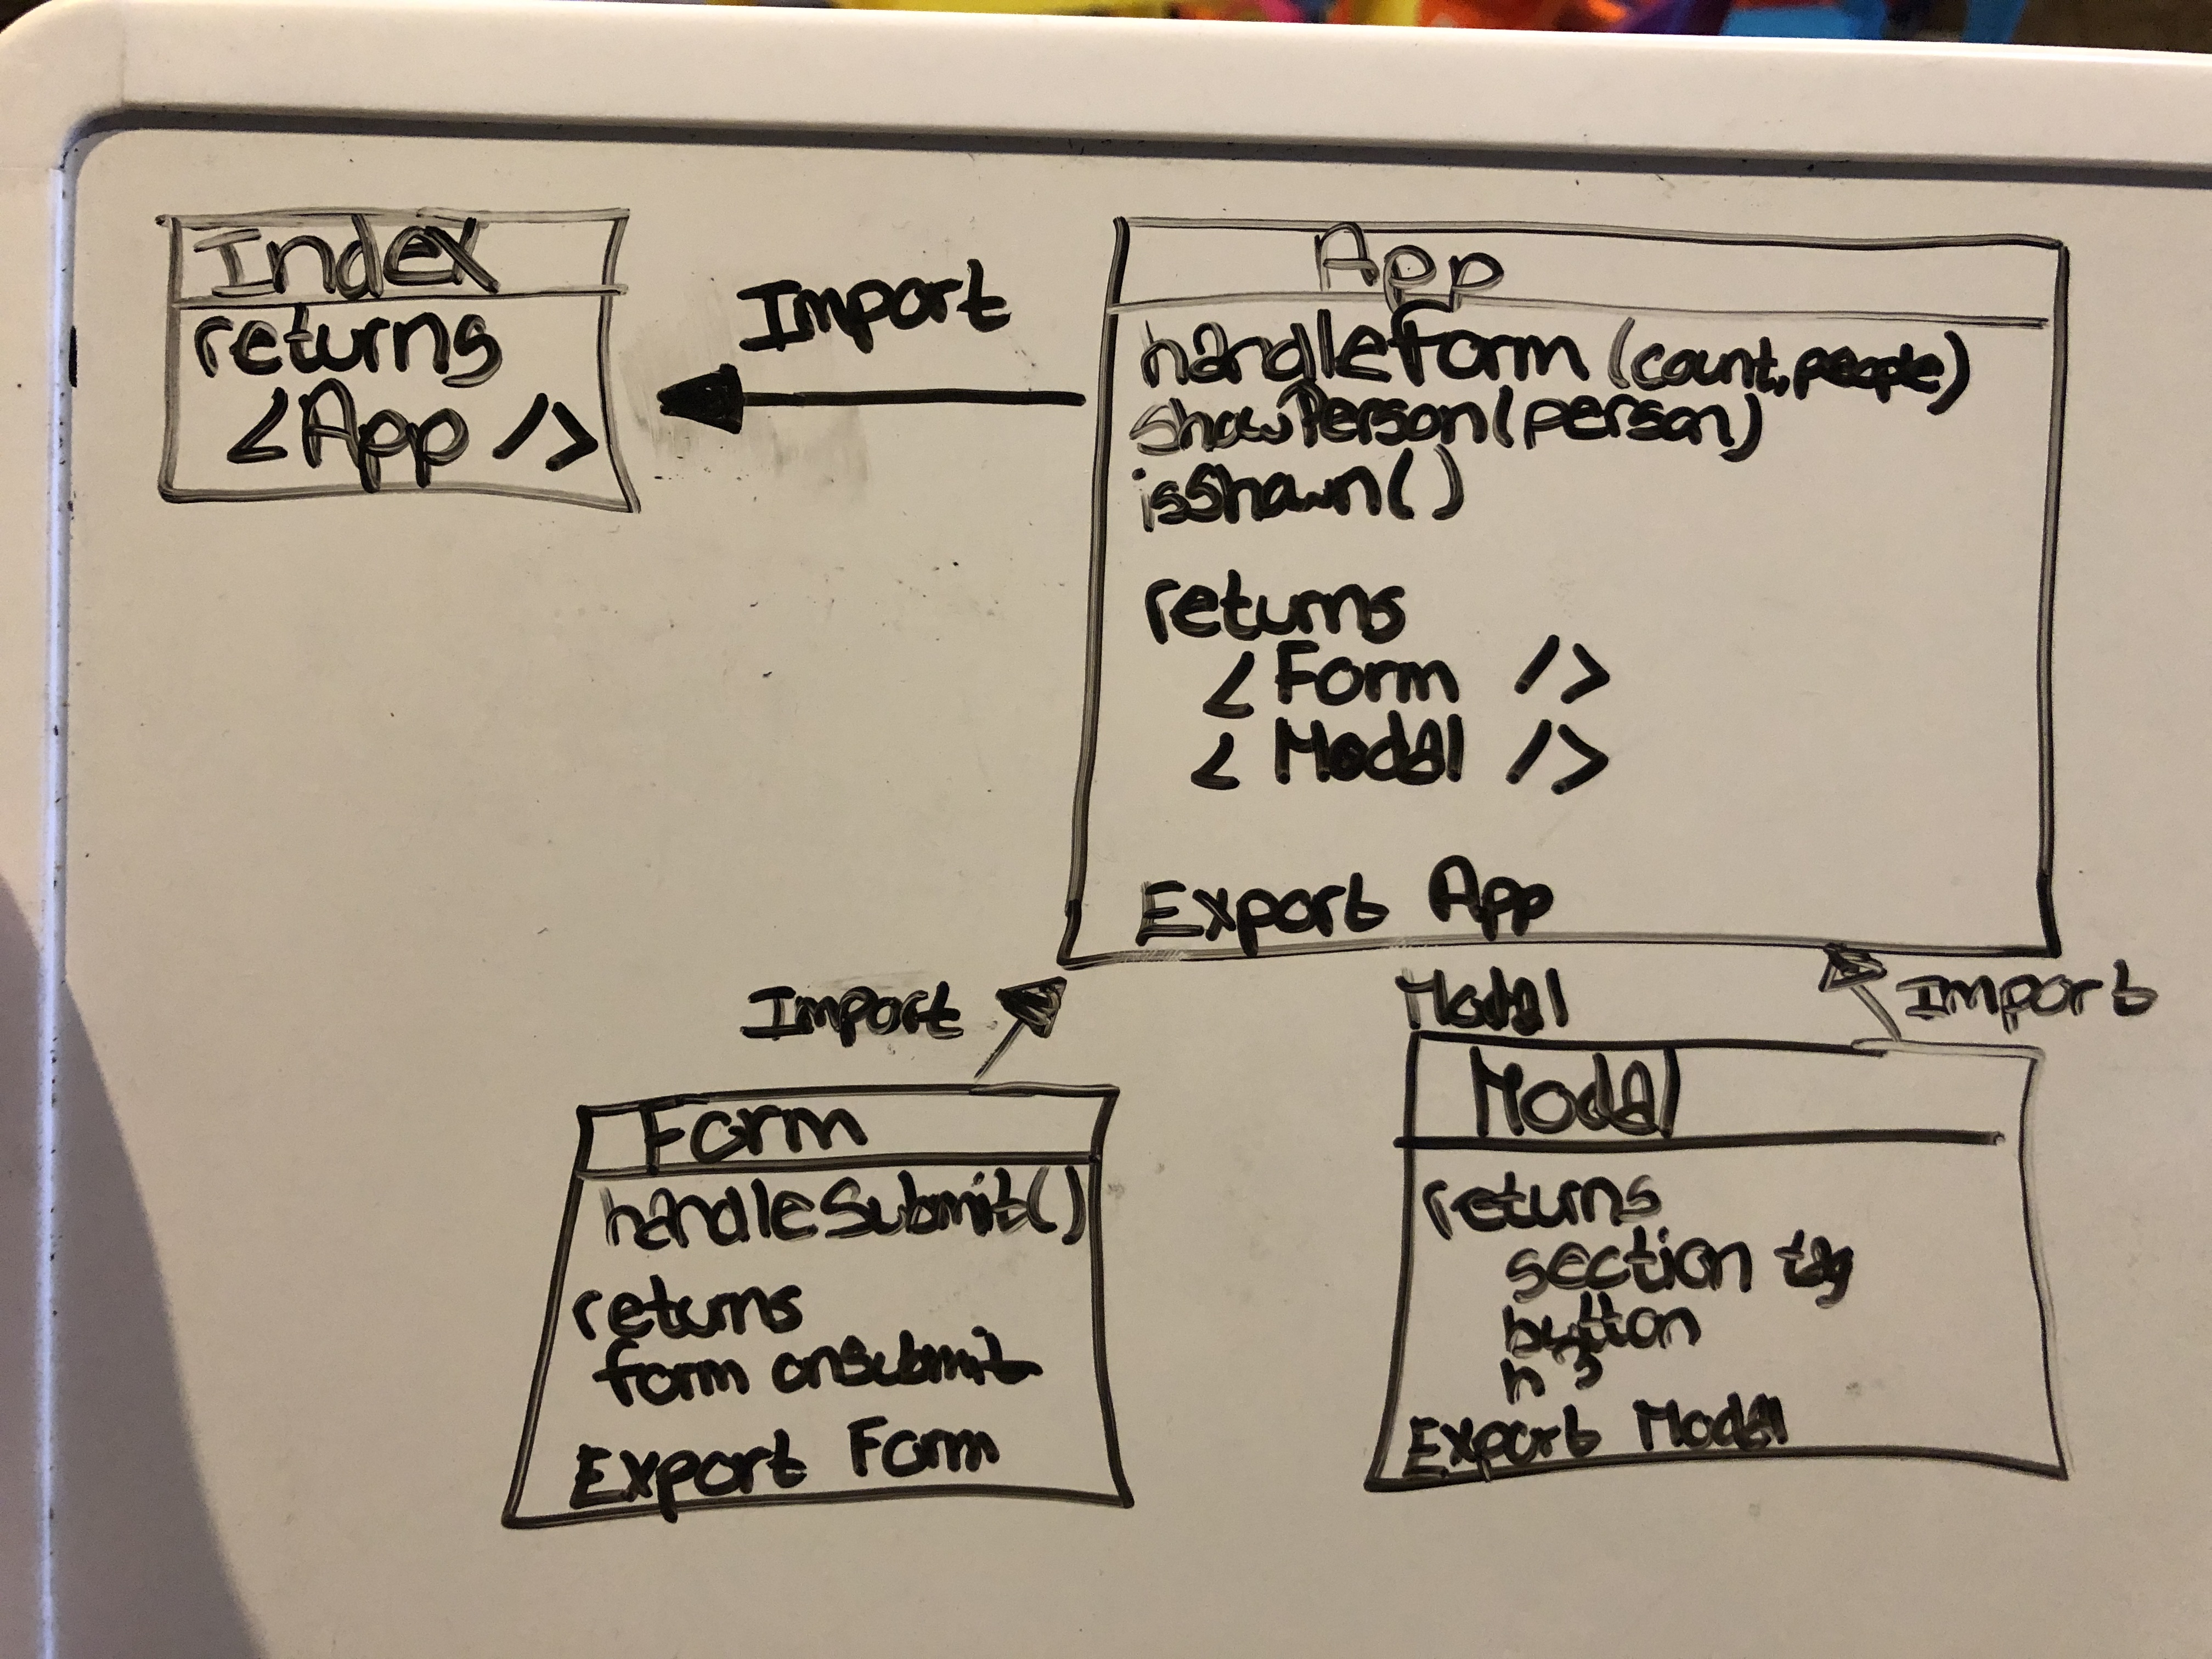 Index
returns
<App />
Import
App
handleForm (count, people)
showPerson(person)
isShown()
returns
<Form />
<Modal />
Export App
Import
Form
handleSubmit()
returns
form onsubmit
Export Form
Modal
Import
Modal
returns
section tag
button
h3
Export Modal